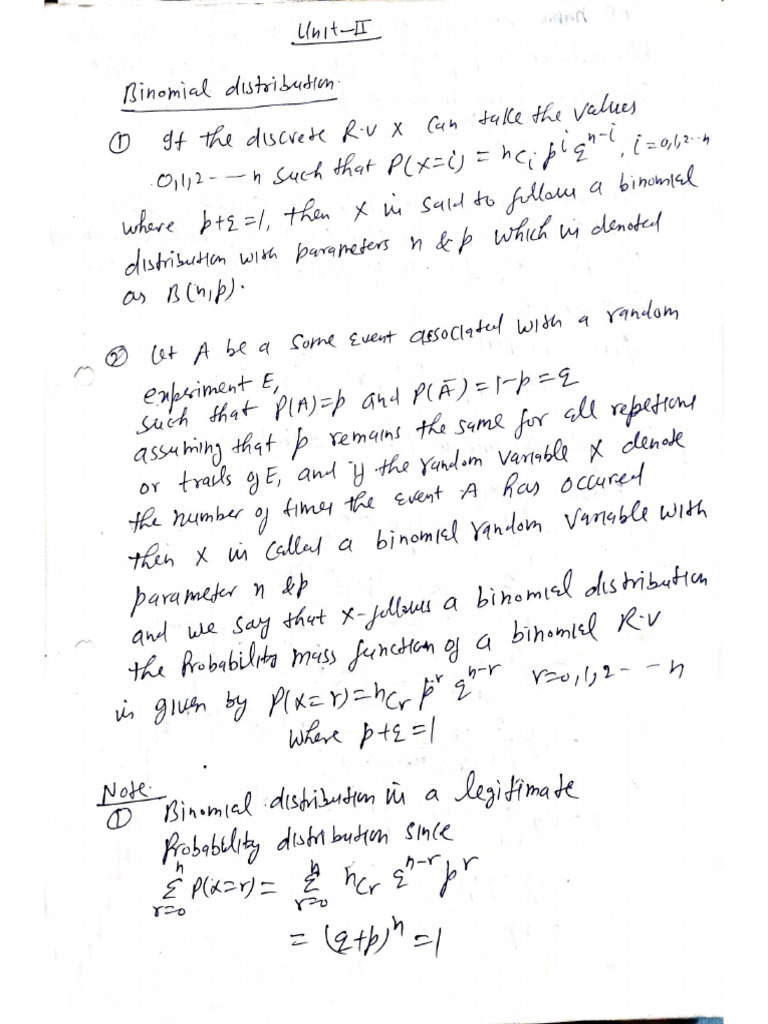 Unit-II
Binomial distribution.
① If the discrete R.V X can take the values
0,1,2---n such that P(X=i) = nCi p^i q^n-i, i=0,1,2--n
where p+q=1, then X is said to follow a binomial
distribution with parameters n & p which is denoted
as B(n,p).
② Let A be a some event associated with a random
experiment E,
such that P(A)=p and P(Ā)=1-p=q
assuming that p remains the same for all repetions
or trails of E, and if the random variable X denote
the number of times the event A has occured
then X is called a binomial random variable with
parameter n &p
and we say that X-follows a binomial distribution
the Probability mass function of a binomial R.V
is given by P(X=r)=nCr p^r q^n-r r=0,1,2---n
where p+q=1
Note.
① Binomial distribution is a legitimate
Probability distribution since
n∑r=0 P(X=r) = n∑r=0 nCr q^n-r p^r
= (q+p)^n =1